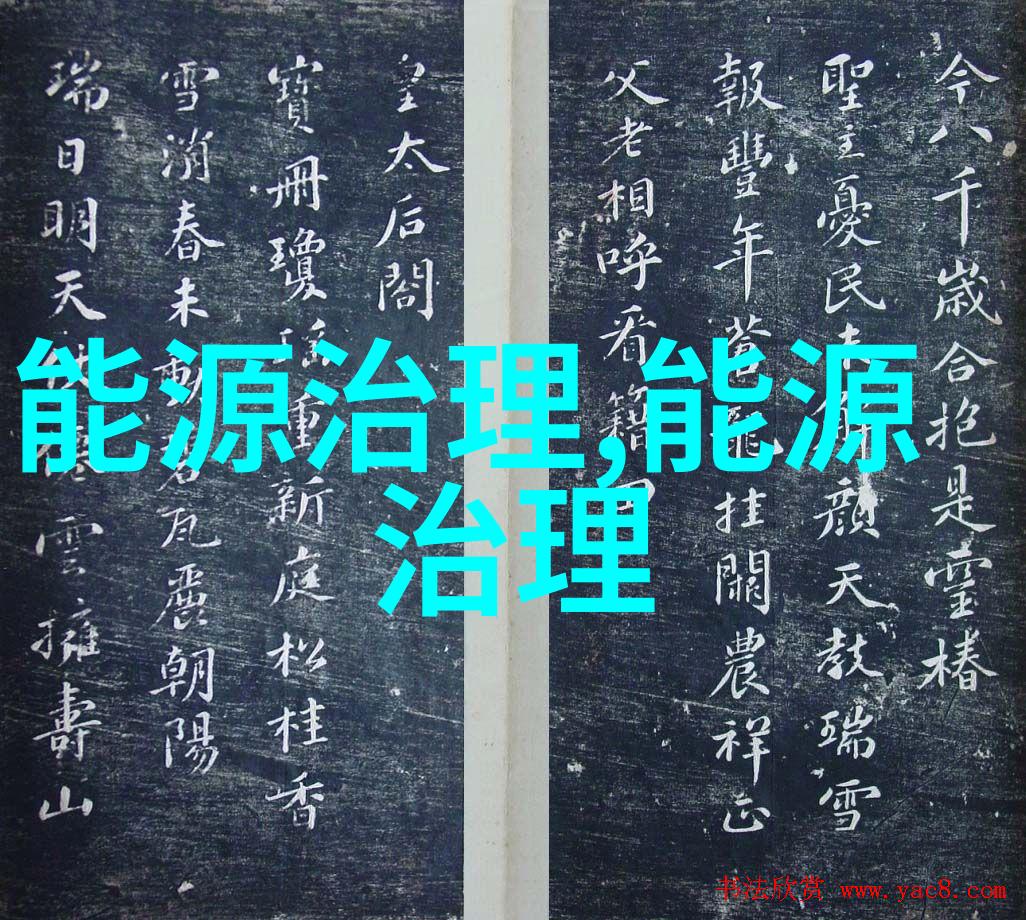 今八千歲合抱是靈椿
聖主憂民未解顏天教瑞雪
報豐年蒼龍挂闕農祥正
父老相呼看籍田
皇太后閣
寶冊瓊瑤重新庭松桂香
雪消春未動碧瓦麗朝陽
瑞日明天雲擁壽山
能源治理,能源
治理
书法欣赏 www.yac8.com